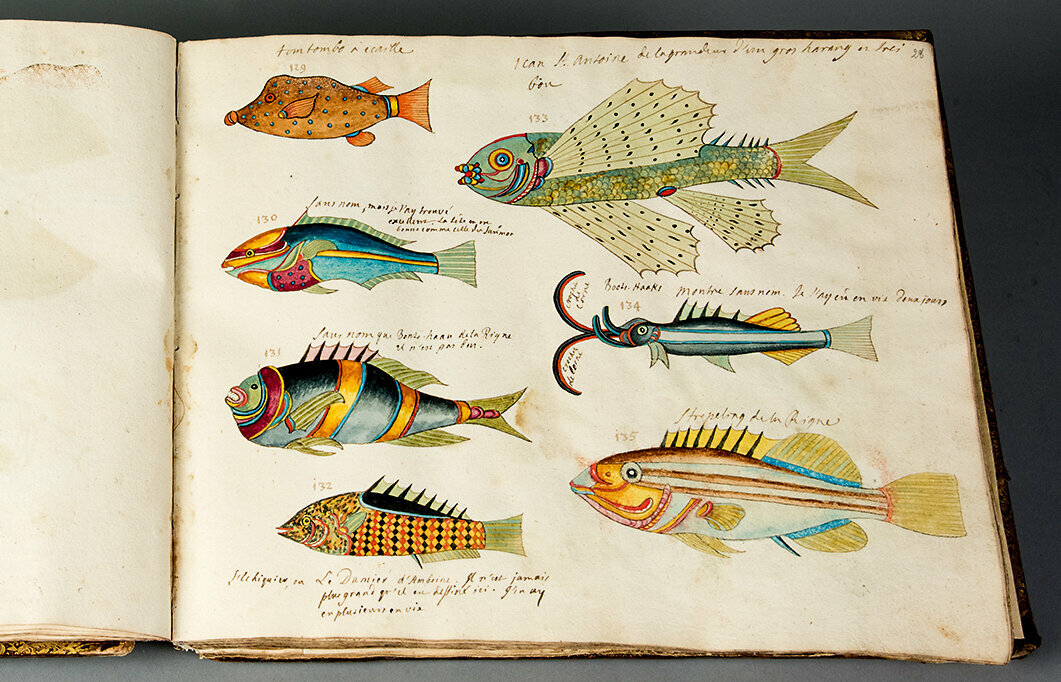 tomtombo à ecaille
129
Jean St. Antoine de la grandeur d'un gros harang et très
bon
28
133
130
Sans nom, mais je l'ay trouvé
excellent. La tête en est
bonne comme celle du
Boots-Haaks montre sans nom. Je l'ay eû en vie deux jours
134
crochet
de
corne
crochet
de corne
131
Sans nom que Bonts-haan de la Rigne
il n'est pas bon.
Stropeling de la Rigne
135
132
ou Le Damier d'Amboine. Il n'est jamais
plus grand qu'il est dessiné ici. J'en ay
eu plusieurs en vie